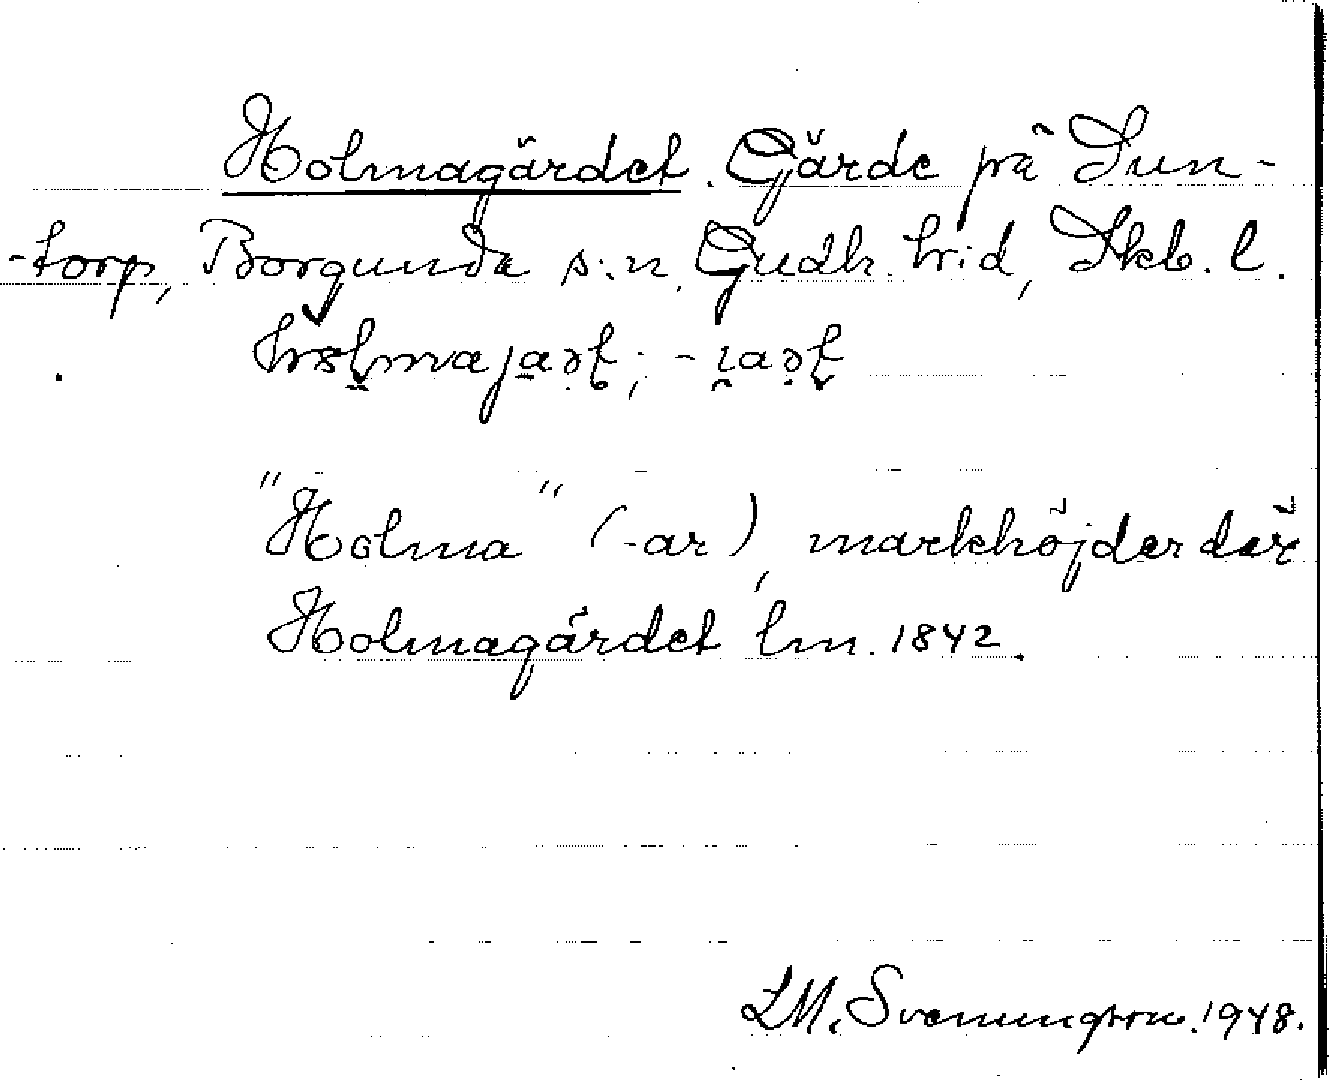 Holmagärdet. Gärde på Sun-
-torp, Borgunda s:n. Gudh. hrid, Skb. l.
"Holma" (-ar), markhöjder där
Holmagärdet lm. 1842.
LM. Svenungsson. 1948.